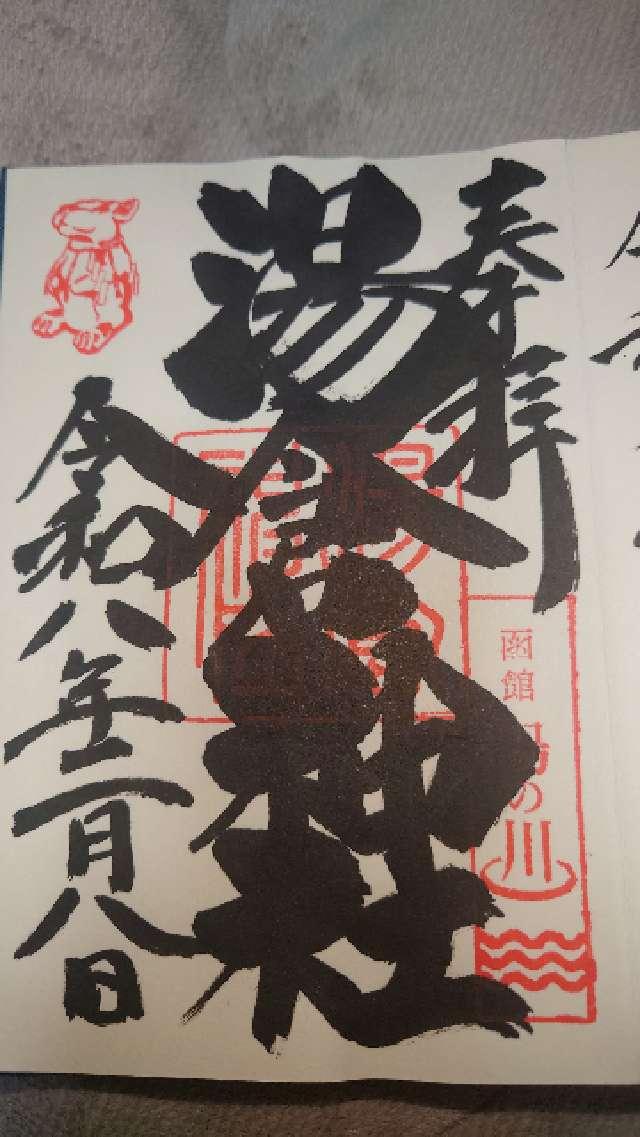 奉拝
函館
湯の川
湯倉神社
令和八年二月八日